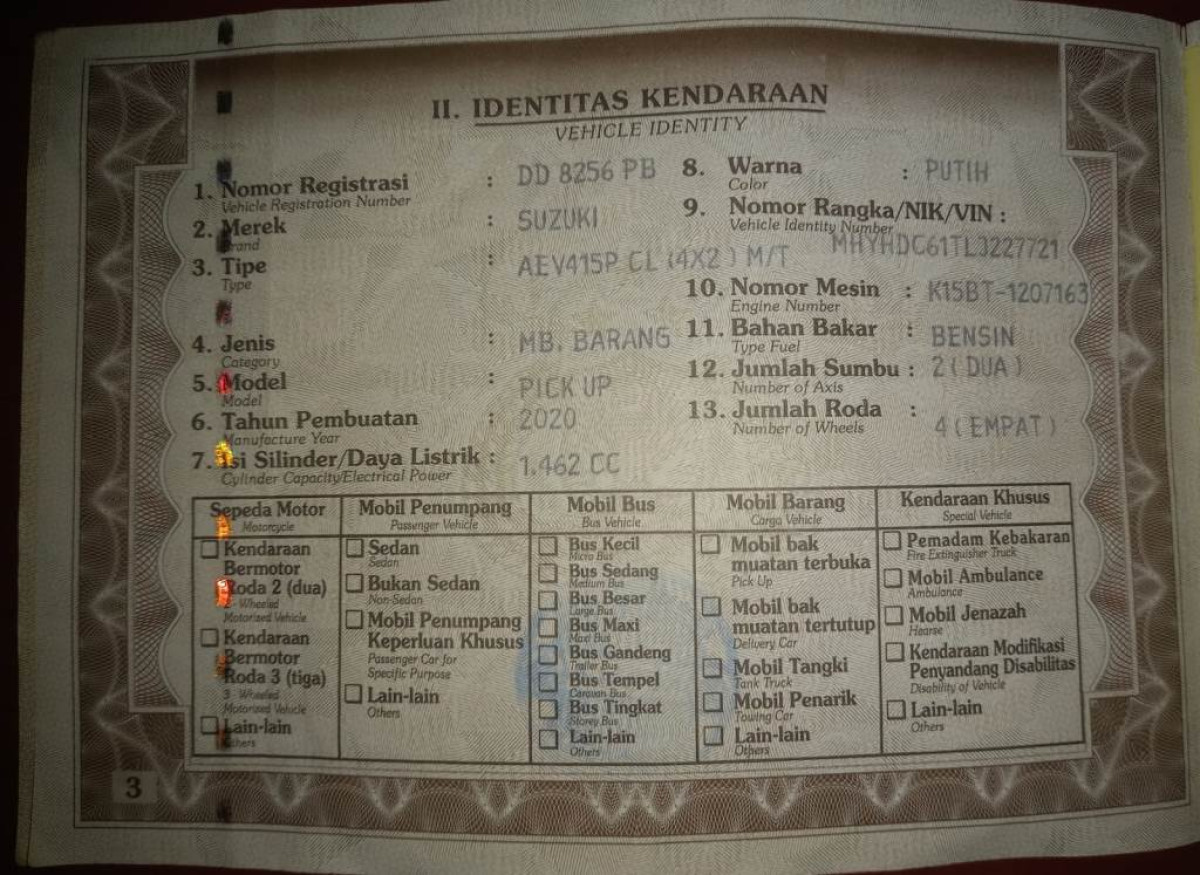 II. IDENTITAS KENDARAAN
VEHICLE IDENTITY
1. Nomor Registrasi : DD 8256 PB
Vehicle Registration Number
2. Merek : SUZUKI
Brand
3. Tipe : AEV415P CL (4X2) M/T
Type
4. Jenis : MB. BARANG
Category
5. Model : PICK UP
Model
6. Tahun Pembuatan : 2020
Manufacture Year
7. Isi Silinder/Daya Listrik : 1.462 CC
Cylinder Capacity/Electrical Power
8. Warna : PUTIH
Color
9. Nomor Rangka/NIK/VIN :
Vehicle Identity Number
MHYHDC61TLJ227721
10. Nomor Mesin : K15BT-1207163
Engine Number
11. Bahan Bakar : BENSIN
Type Fuel
12. Jumlah Sumbu : 2 ( DUA )
Number of Axis
13. Jumlah Roda : 4 ( EMPAT )
Number of Wheels
Sepeda Motor
Motorcycle
Kendaraan
Bermotor
Roda 2 (dua)
2 - Wheeled
Motorised Vehicle
Kendaraan
Bermotor
Roda 3 (tiga)
3 - Wheeled
Motorised Vehicle
Lain-lain
Others
Mobil Penumpang
Passenger Vehicle
Sedan
Sedan
Bukan Sedan
Non-Sedan
Mobil Penumpang
Keperluan Khusus
Passenger Car for
Specific Purpose
Lain-lain
Others
Mobil Bus
Bus Vehicle
Bus Kecil
Micro Bus
Bus Sedang
Medium Bus
Bus Besar
Large Bus
Bus Maxi
Maxi Bus
Bus Gandeng
Trailer Bus
Bus Tempel
Caravan Bus
Bus Tingkat
Storey Bus
Lain-lain
Others
Mobil Barang
Cargo Vehicle
Mobil bak
muatan terbuka
Pick Up
Mobil bak
muatan tertutup
Delivery Car
Mobil Tangki
Tank Truck
Mobil Penarik
Towing Car
Lain-lain
Others
Kendaraan Khusus
Special Vehicle
Pemadam Kebakaran
Fire Extinguisher Truck
Mobil Ambulance
Ambulance
Mobil Jenazah
Hearse
Kendaraan Modifikasi
Penyandang Disabilitas
Disability of Vehicle
Lain-lain
Others
3